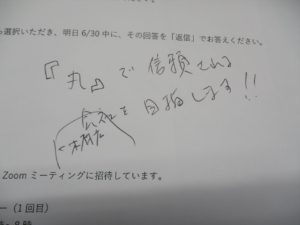 選択いただき、明日 6/30 中に、その回答を「返信」でお答えください。
『丸』で信頼される
会社を目指します!!
Zoom ミーティングに招待しています。
ー（1 回目）